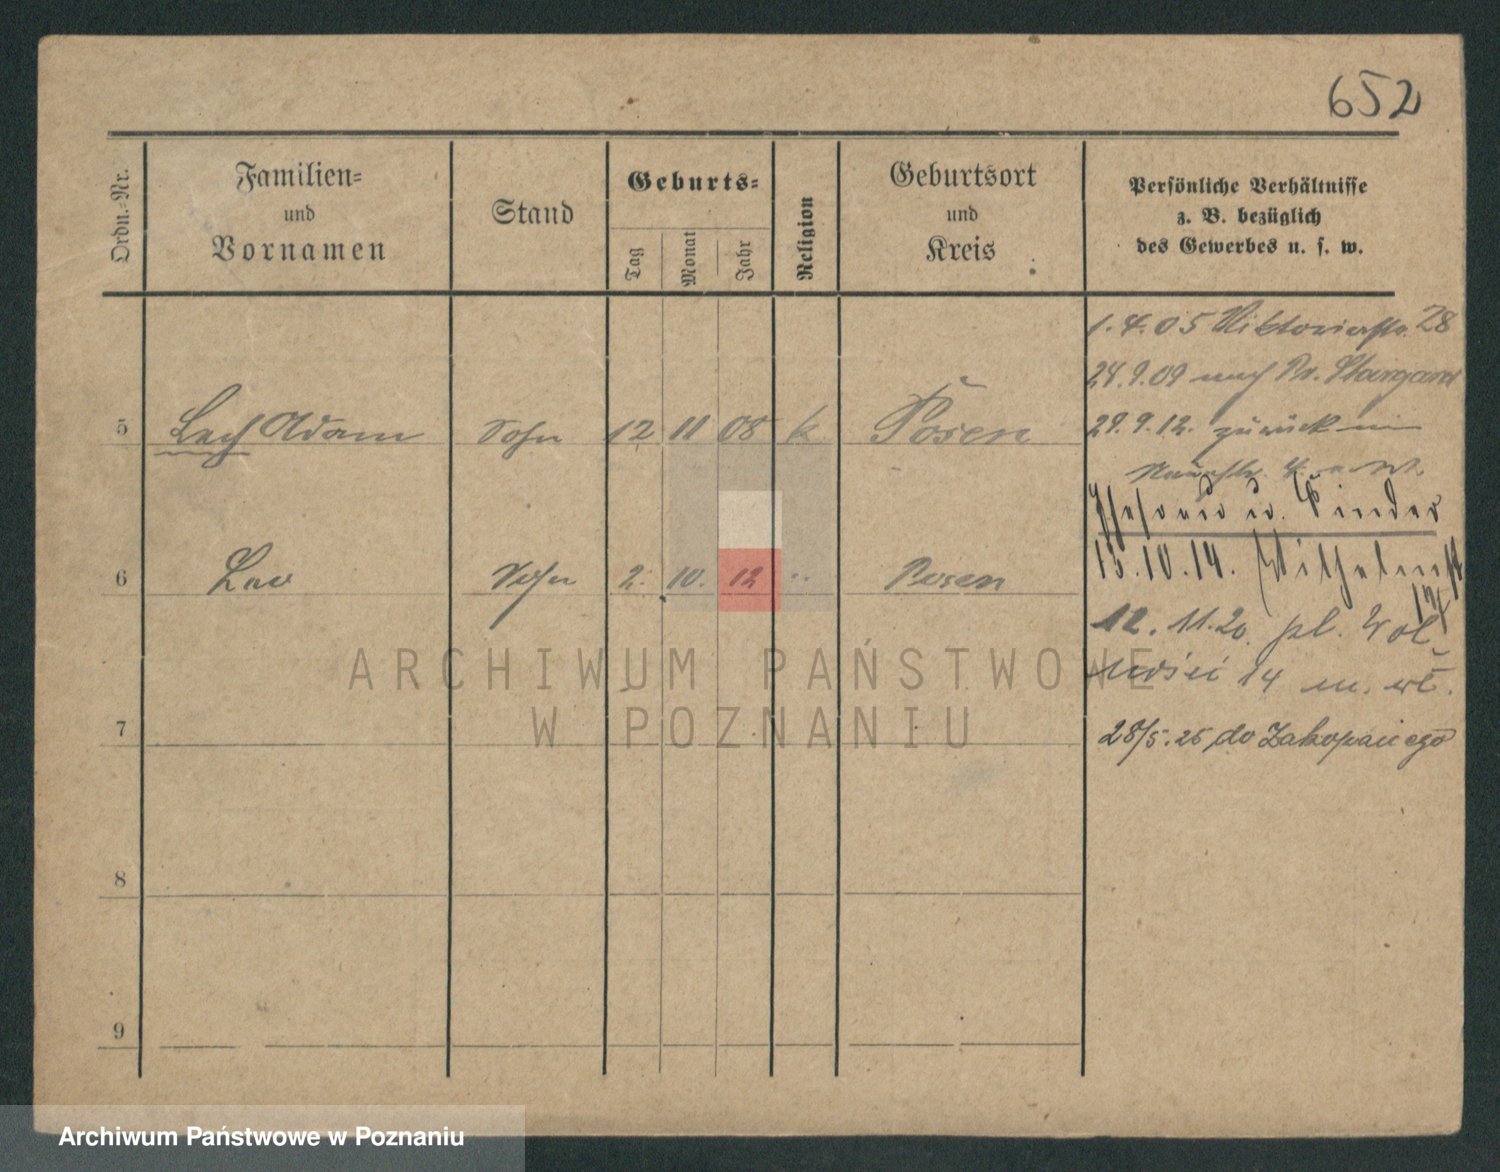 652
Ordn.-Nr.
Familien-
und
Vornamen
Stand
Geburts-
Tag
Monat
Jahr
Religion
Geburtsort
und
Kreis
Persönliche Verhältnisse
z. B. bezüglich
des Gewerbes u. s. w.
1.4.05 Viktoriastr. 28
24.9.09 nach Pr. Stargard
5 Lech Adam Sohn 12 11 08 k Posen
29.9.12. zurück
Ehefrau u. Kinder
13.10.14. Wilhelmst
17
6 Leo Sohn 2. 10. 12 " Posen
12.11.20 pl. Wol-
ności 14 m. wł.
7
28/5.25 do Zakopanego
8
9
ARCHIWUM PAŃSTWOWE
W POZNANIU
Archiwum Państwowe w Poznaniu